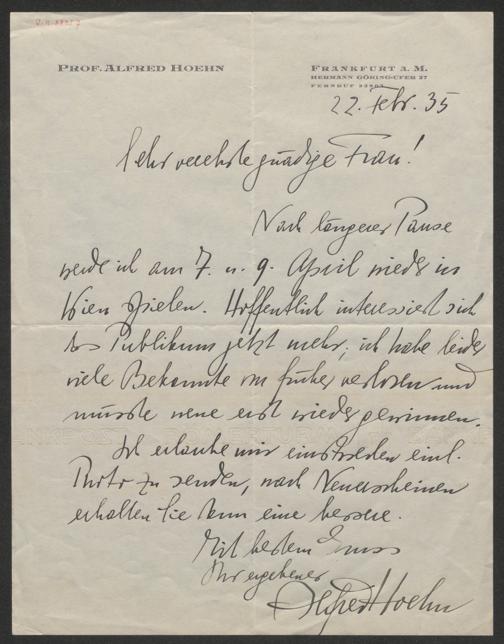 PROF. ALFRED HOEHN
FRANKFURT A. M.
HERMANN GÖRING-UFER 27
FERNRUF
22. Febr. 35
Sehr verehrte gnädige Frau!
Nach längerer Pause
werde ich am 7. u. 9. April wieder in
Wien spielen. Hoffentlich interessiert sich
das Publikum jetzt mehr; ich habe leider
viele Bekannte von früher verloren und
müsste neue erst wieder gewinnen.
Ich erlaube mir einstweilen einl.
Photo zu senden, nach Neuerscheinen
erhalten Sie dann eine bessere.
Mit bestem Gruss
Ihr ergebener
Alfred Hoehn